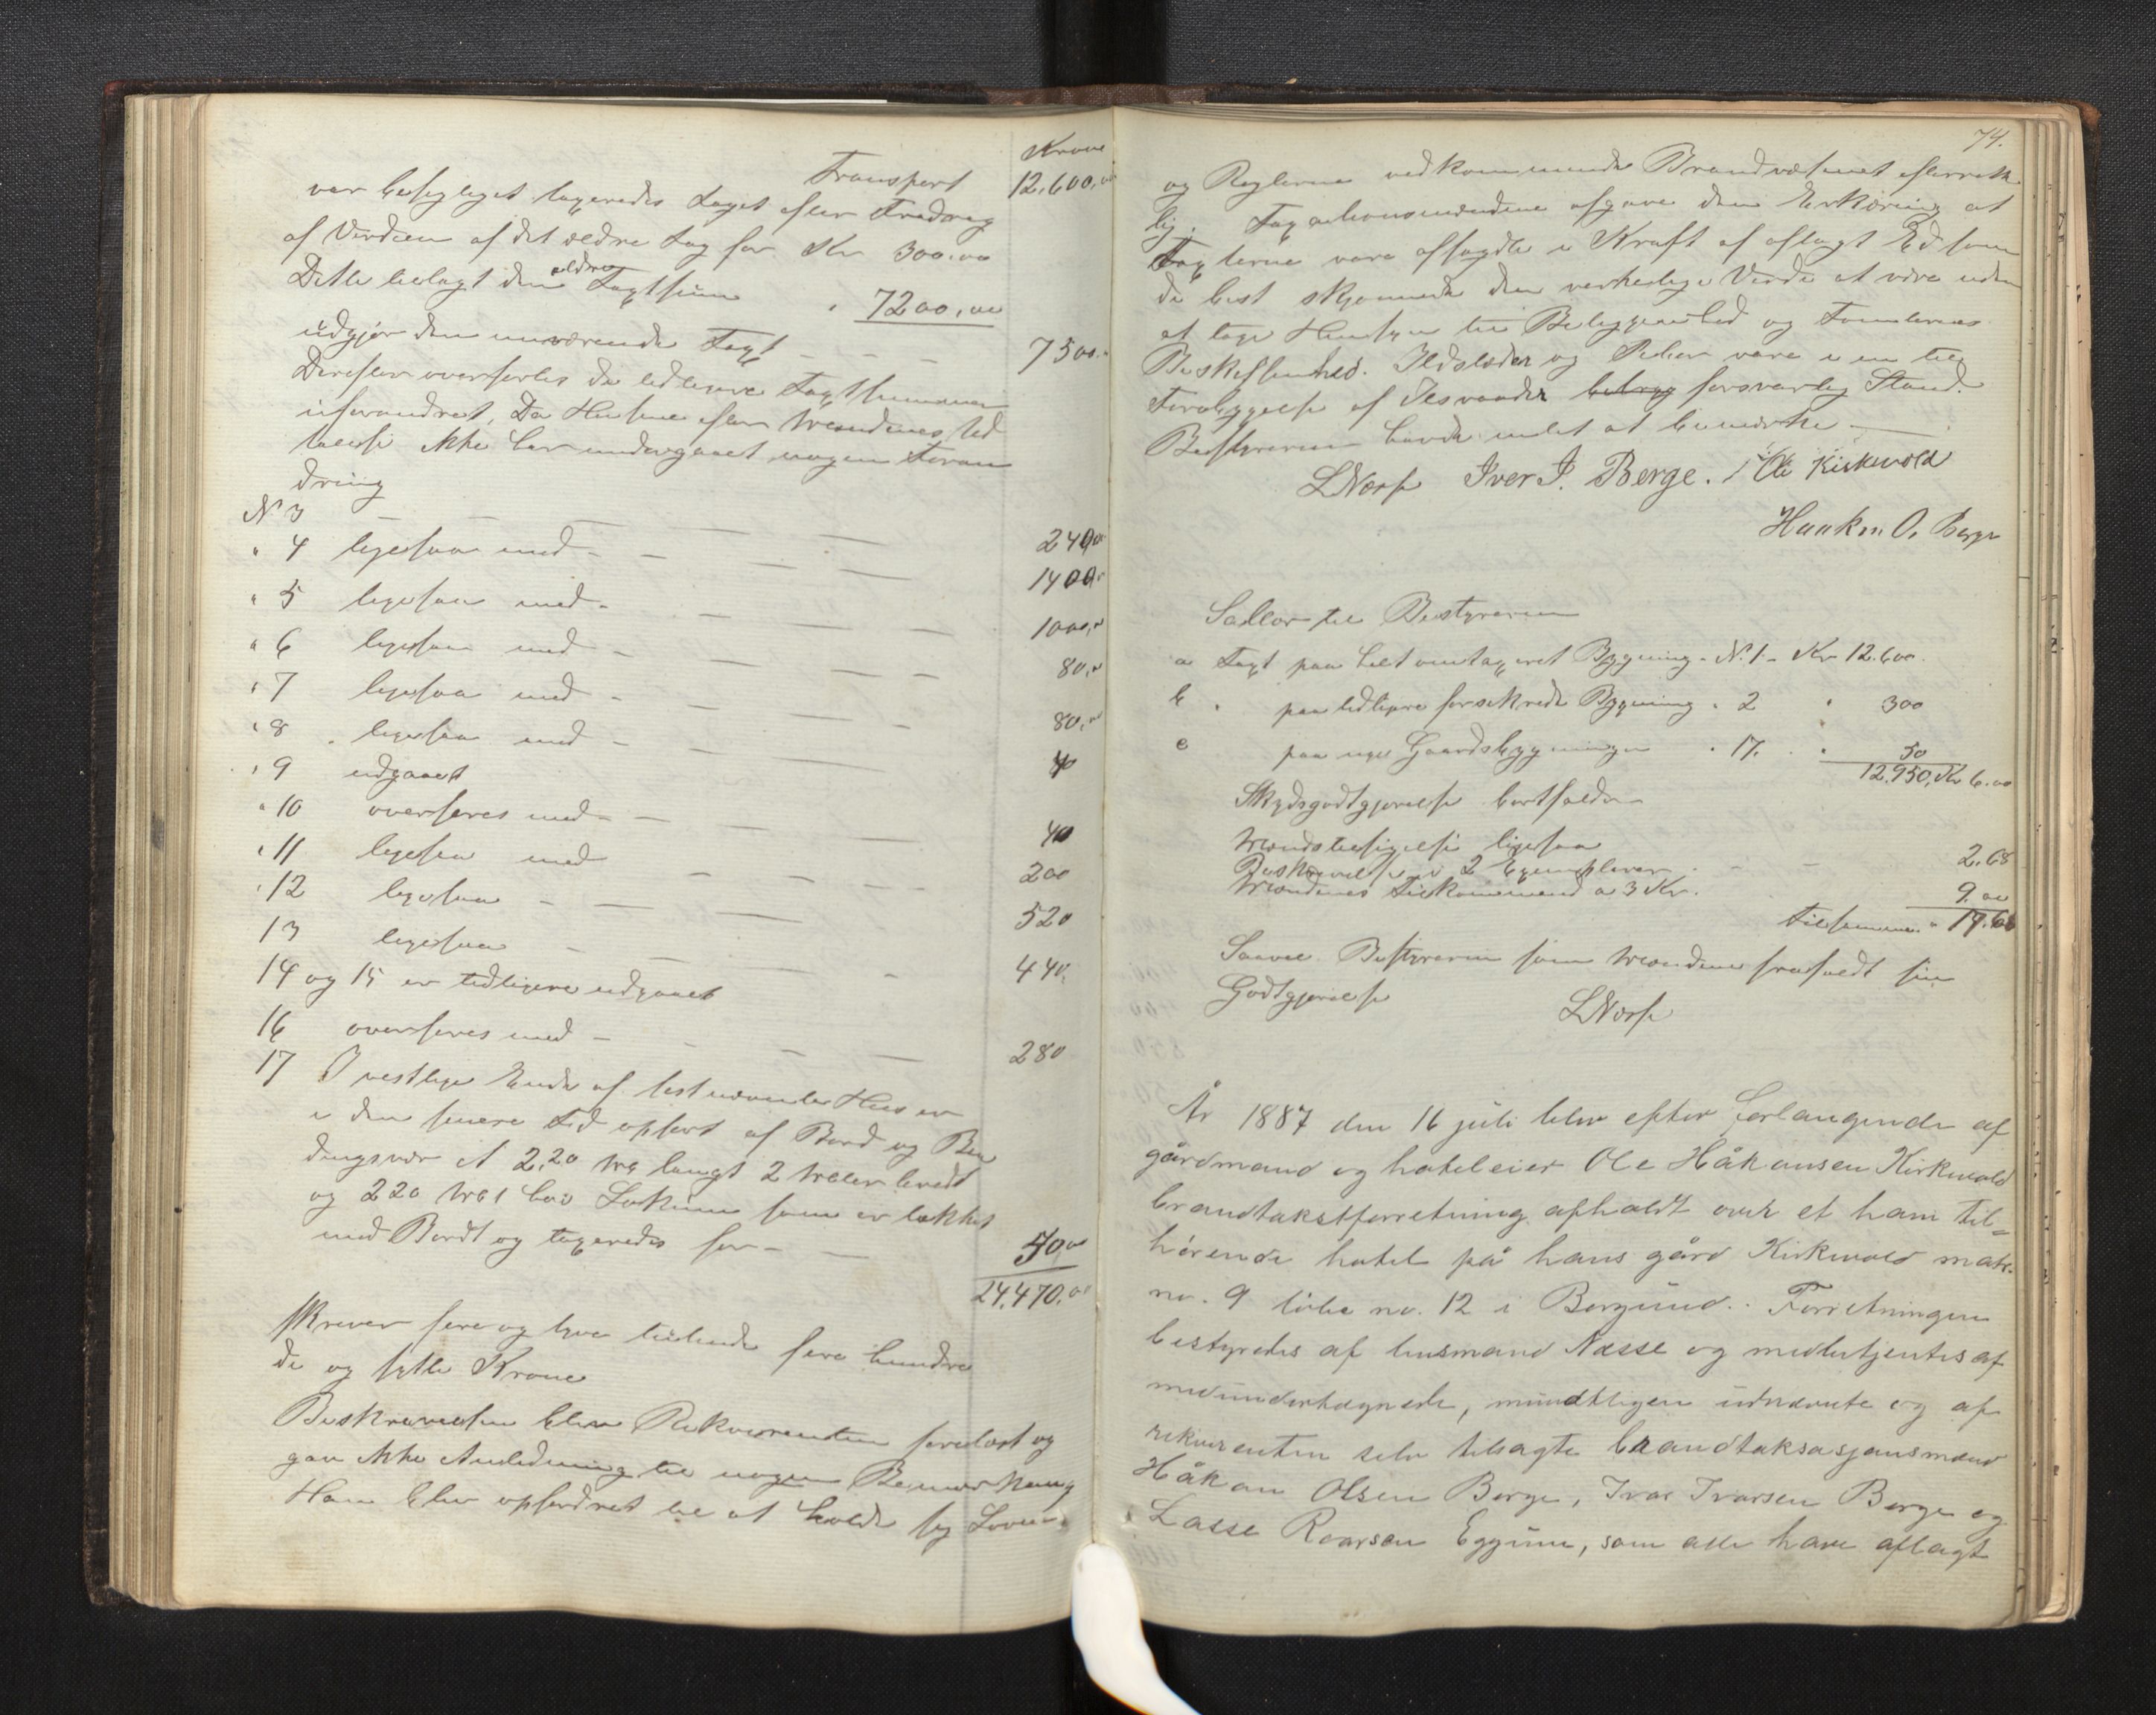 Krone
Transport 12.600,00
var besigtiget taxeredes Taget efter Fradrag
af Verdien af det ældre Tag for Kr 300.00
Dette tillagt den ældre Taxtsum " 7200,00
udgjør den nuværende Taxt 7500.
Derefter overførtes de tidligere Taxtsummer
uforandret, da Husene efter Mændenes Ud
talelse ikke har undergaaet nogen Foran
dring
N 3 240,00
" 4 ligesaa med 1400,
" 5 ligesaa med 1000,00
" 6 ligesaa med 80,00
" 7 ligesaa med 80,00
" 8 ligesaa med 40
" 9 udgaaet
" 10 overføres med 40
" 11 ligesaa med 200
" 12 ligesaa 520
13 ligesaa 440.
14 og 15 er tidligere udgaaet
16 overføres med 280
17 I vestlige Ende af sistnævnte Hus er
i den senere Tid opført af Bord og Bin
dingsvær et 2,20 Met langt 2 Meter bredt
og 220 Met høi Lokum som er tækket
med Bord og taxeredes for 50,00
24.470.00
skriver fire og tyve tusinde fire hundre
de og sytti Krone
Beskrivelsen blev Rekvirenten forelæst og
gav ikke Anledning til nogen Bemærkning
Han blev opfordret til at holde sig Loven
74.
og Reglerne vedkommende Brandvæsenet efterrette
lig. Taxationsmændene afgave den Erklæring at
Taxterne vare afsagte i Kraft af aflagt Ed som
de best skjønnede den verkelige Verdi at være uden
at tage Hensyn til Beliggenhed og Tomternes
Beskaffenhed. Ildsteder og Piber vare i en til
Forebyggelse af Ilsvaade betryg forsvarlig Stand.
Bestyreren havde intet at bemærke
LNæsse Iver I. Berge. Ole Kirkevold
Haakon O. Berge
Sallar til Bestyreren
a Taxt paa helt omtaxeret Bygning N. 1 Kr 12.600.
b " paa tidligere forsikrede Bygning " 2 " 300
c paa nye Gaardsbygninger " 17. " 50
12.950, Kr 6.00
Skydsgodtgjørelse bortfalder
Mændstilsigelse ligesaa
Beskrivelse i 2 Exemplarer 2.68
Mændenes Tilkommende a 3 Kr. 9.00
tilsammen " 17.68
Saavel Bestyreren som Mændene frafaldt sin
Godtgjørelse
LNæsse
År 1887 den 16 juli blev efter forlangende af
gårdmand og hoteleier Ole Håkonsen Kirkevold
brandtakstforretning afholdt over et ham til=
hørende hotel på hans gård Kirkevold matr.
no. 9 løbe no. 12 i Borgund. Forretningen
bestyredes af lensmand Næsse og medbetjentes af
medundertegnede, mundtligen udnævnte og af
rekvirenten selv tilsagte brandtaksasjonsmænd
Håkon Olsen Berge, Ivar Ivarsen Berge og
Lasse Roarsen Eggum, som alle have aflagt